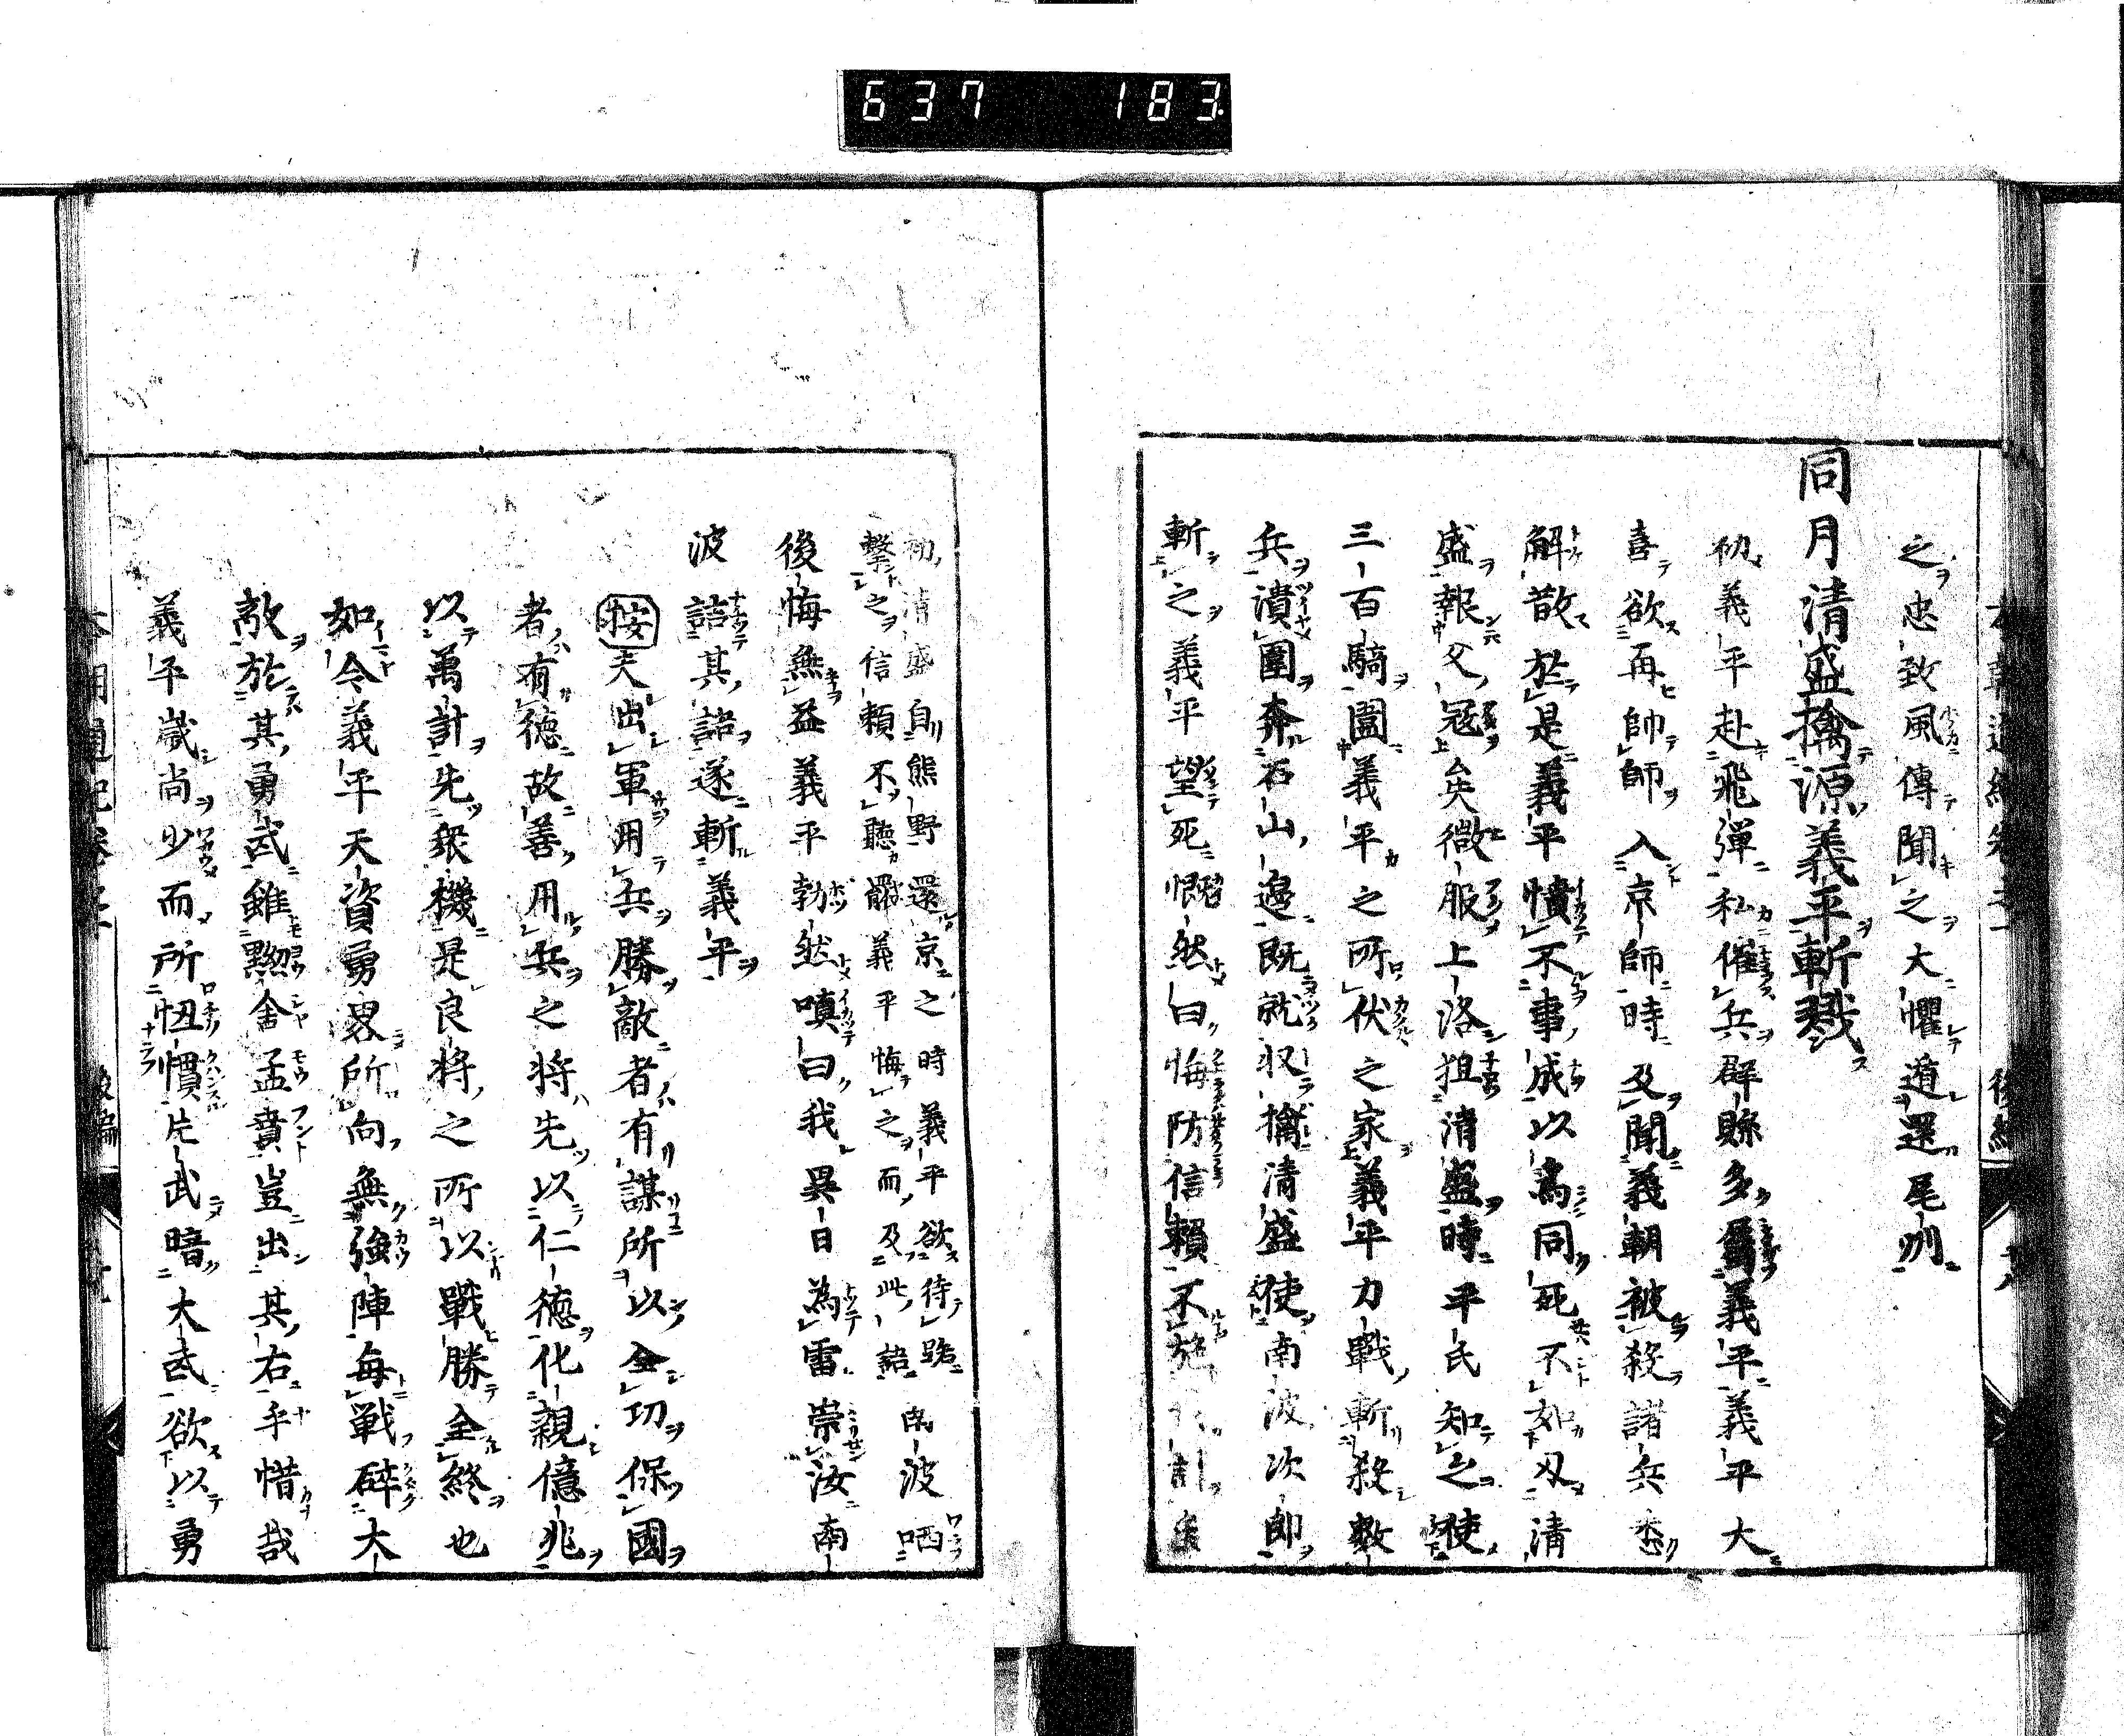 637 183
之忠致風傳聞之大懼遁還尾州
同月清盛擒源義平斬戮
初義平赴飛彈私催兵群縣多屬義平義平大
喜欲再帥師入京師時及聞義朝被殺諸兵悉
解散於是義平憤不事成以為同死不如刄清
盛報父冦矣微服上洛狙清盛時平氏知之使
三百騎圍義平之所伏之家義平力戰斬殺數
兵潰圍奔石山邊既就収擒清盛使南波次郎
斬之義平望死恨然曰悔防信賴不施
初清盛自熊野還京之時義平欲待路
擊之信賴不聽義平悔之而及此詰南波哂
後悔無益義平勃然嗔曰我異日為雷祟汝南
波詰其諾遂斬義平
按夫出軍用兵勝敵者有謀所以全功保國
者有德故善用兵之將先以仁德化親億兆
以萬計先衆機是良將之所以戰勝全終也
如今義平天資勇畧所向無強陣每戰碎大
敵於其勇武雖黝舍孟賁豈出其右乎惜哉
義平歲尚少而所忸慣片武暗大武欲以勇